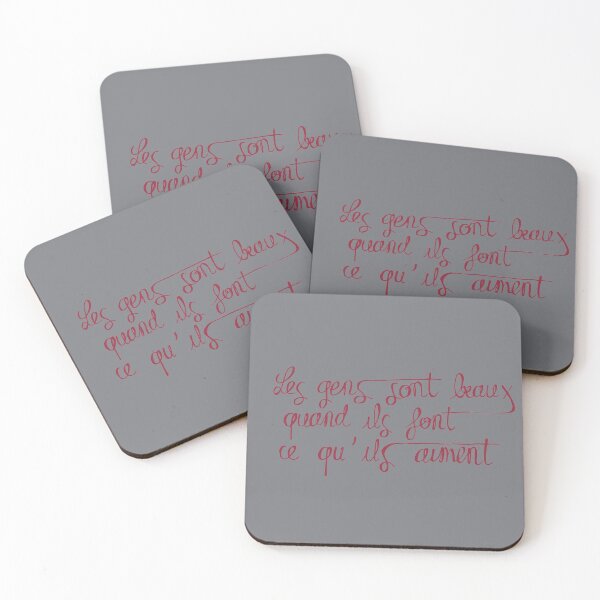 Les gens sont beaux
quand ils font
ce qu'ils aiment
Les gens sont beaux
quand ils font
ce qu'ils aiment
Les gens sont beaux
quand ils font
ce qu'ils aiment
Les gens sont beau
quand font
aiment